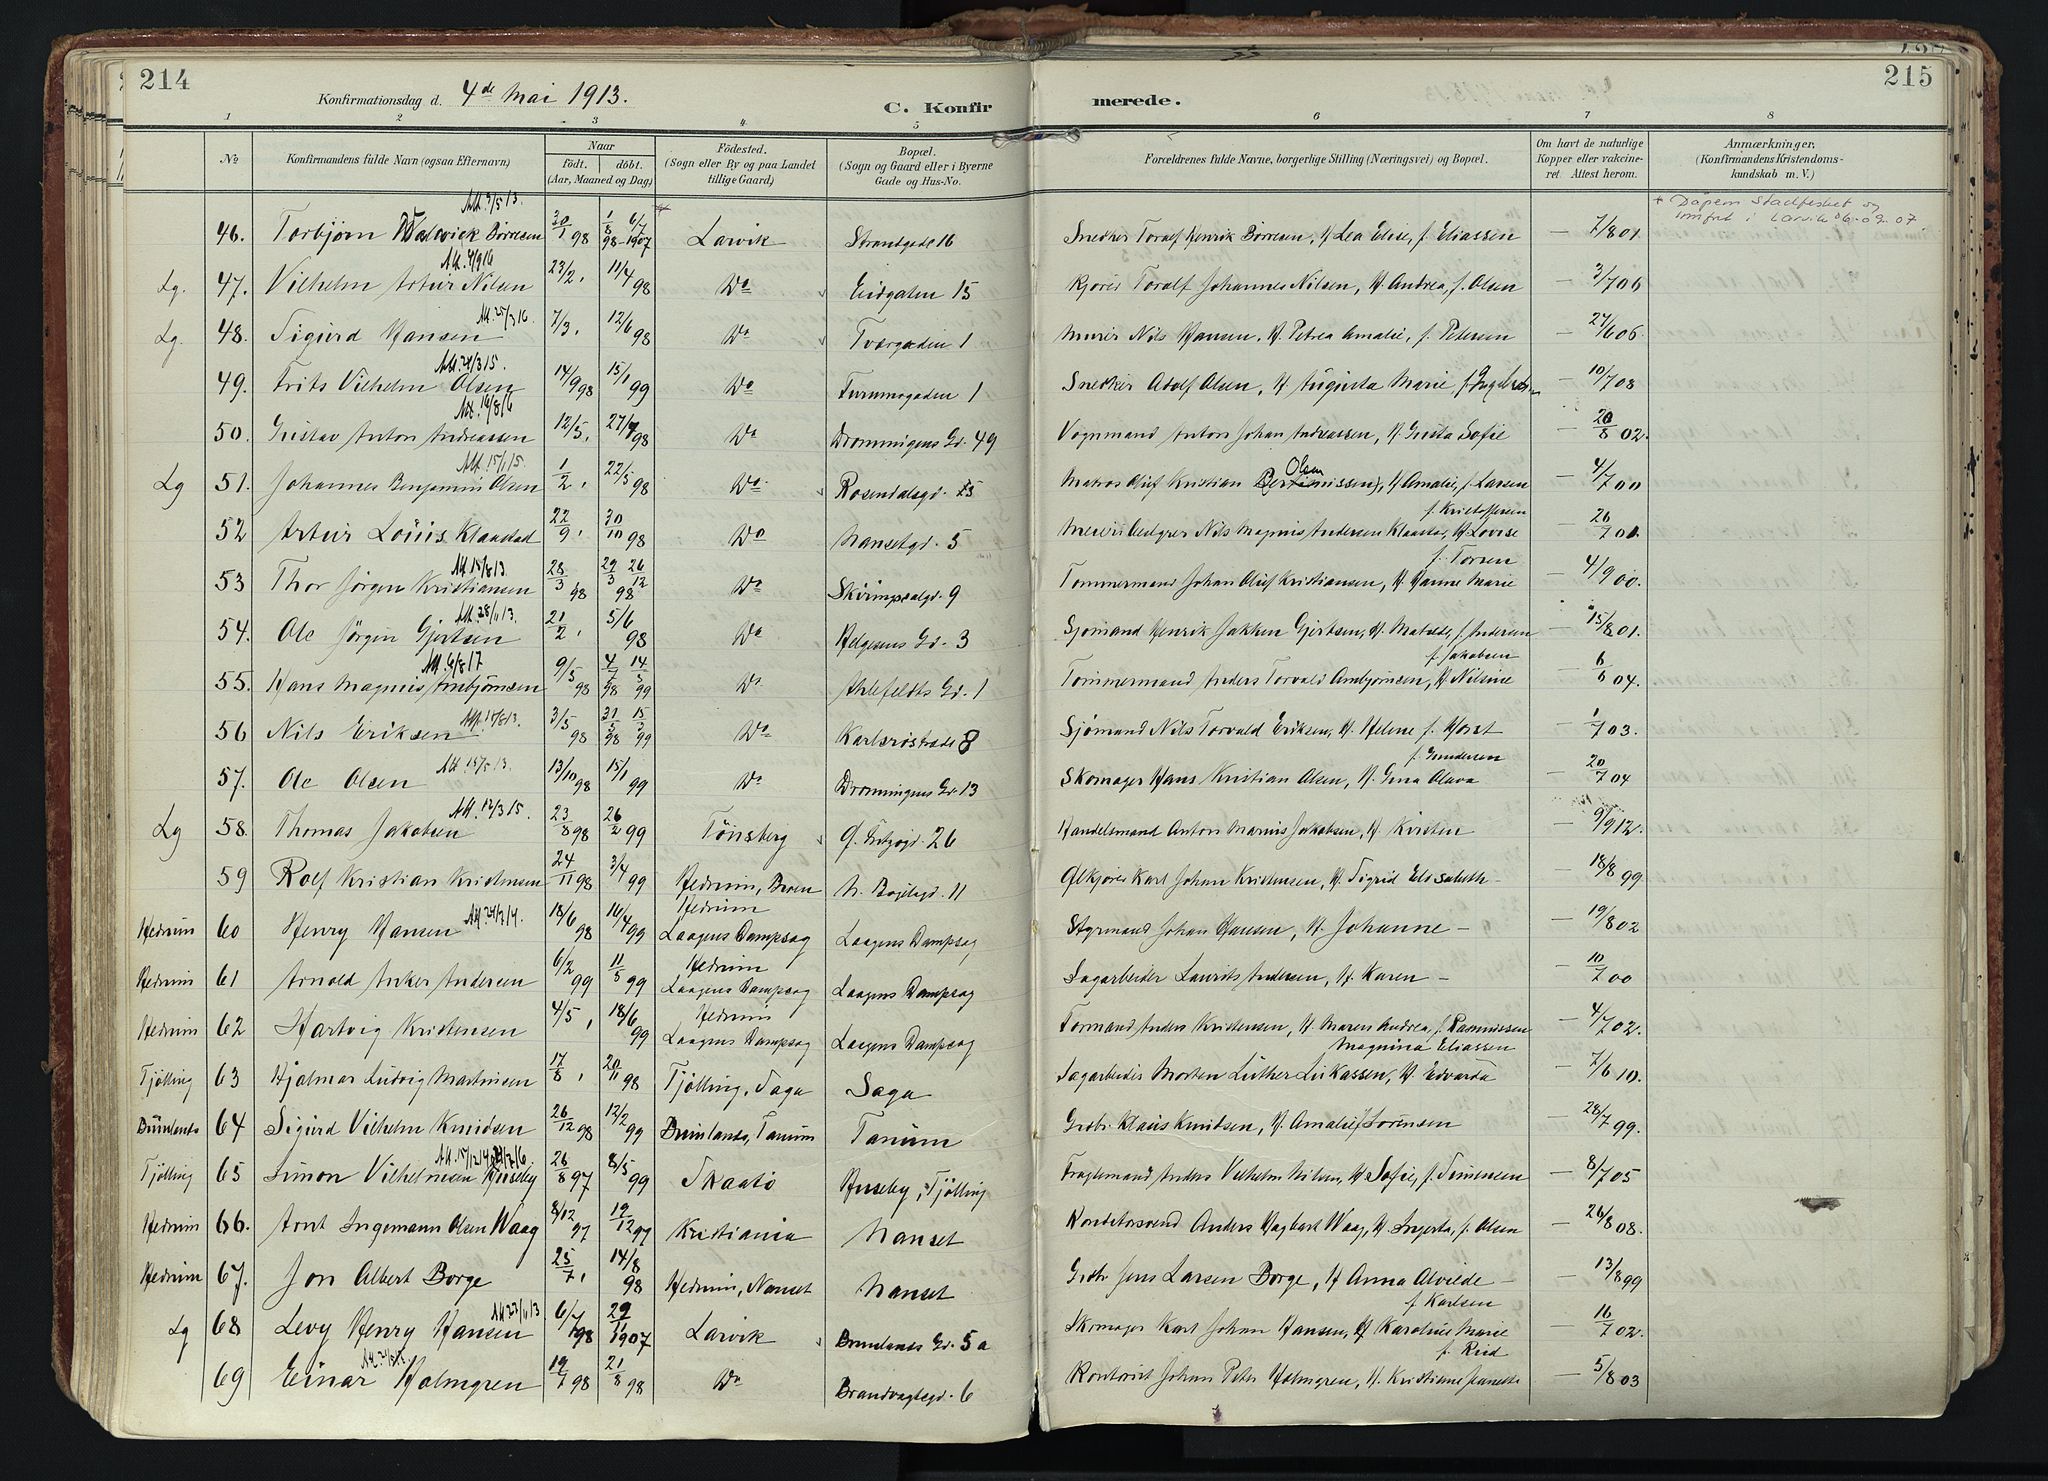 214
215
Konfirmationsdag d. 4de Mai 1913.
C. Konfirmerede.
1 2 3 4 5 6 7 8
No
Konfirmandens fulde Navn (ogsaa Efternavn)
Naar
født. døbt.
(Aar, Maaned og Dag)
Fødested.
(Sogn eller By og paa Landet
tillige Gaard)
Bopæl.
(Sogn og Gaard eller i Byerne
Gade og Hus-No.
Forældrenes fulde Navne, borgerlige Stilling (Næringsvei) og Bopæl.
Om havt de naturlige
Kopper eller vakcine-
ret. Attest herom.
Anmærkninger,
(Konfirmandens Kristendoms-
kundskab m. V.)
+ Dåpen stadfestet og
innført i Larvik 06.09.07.
Att. 9/5 13.
46. Torbjørn Børresen 30/1 98 1/8 98 - 6/7 1907 Larvik Strandgade 16 Snedker Toralf Henrik Børresen, H. Lea Elise, f. Eliassen — 7/8 01.
Lg. 47. Vilhelm Artur Nilsen 23/2, 11/4 98 Do Eidgaten 15 Kjører Toralf Johannes Nilsen, H. Andrea, f. Olsen — 3/7 06
Att. 25/3 16.
Lg. 48. Sigurd Hansen 7/3, 12/6 98 Do Tværgaden 1 Murer Nils Hansen, H. Petrea Amalie, f. Petersen — 27/6 06.
Att. 24/3 15.
49. Frits Vilhelm Olsen 14/9 98 15/1 99 Do Furumogaden 1 Snedker Adolf Olsen, H. Augusta Marie f. — 10/7 08
Att. 16/8 16
50. Gustav Anton Andreassen 12/5, 27/7 98 Do Dronningens Gd. 49 Vognmand Anton Johan Andreassen, H. Gusta Sofie — 20/8 02.
Att. 15/1 15.
Lg 51. Johannes Benjamin Olsen 1/2, 22/5 98 Do Rosendalsgd. 15 Matros Oluf Kristian Olsen, H. Amalie, f. Larsen — 4/7 00
f. Kristoffersen
52 Artur Louis Klaastad 22/9, 30/10 98 Do Nansetgd. 5 Nils Magnus Andersen Klaastad, H. Lovise — 26/7 01.
Att. 15/8 13. f. Torsen
53 Thor Jørgen Kristiansen 28/3 98 29/3 98 26/12 Do Skiringsalgd. 9 Tømmermand Johan Oluf Kristiansen, H. Hanne Marie — 4/9 00.
Att. 28/11 13.
54. Ole Jørgen Gjertsen 21/2, 5/6 98 Do Helgesens Gd. 3 Sjømand Henrik Jakken Gjertsen, H. Matilde, f. Andersen — 15/8 01.
Att. 6/8 17 f. Jakobsen
55. Hans Magnus Ambjørnsen 9/5 98 4/7 98 14/5 99 Do Ahlefeldts Gd. 1 Tømmermand Anders Torvald Ambjørnsen, H. Nilsine — 6/6 04.
56 Nils Eriksen 3/5 98 31/5 98 15/3 99 Do Karlsrostræde 8 Sjømand Nils Torvald Eriksen, H. Helene f. Horst — 1/7 03.
Att. 15/5 13. f. Gundersen
57. Ole Olsen 13/10 98 15/1 99 Do Dronningens Gd. 13 Skomager Hans Kristian Olsen, H. Gina Olava — 20/7 04
Att. 12/3 15.
Lg 58. Thomas Jakobsen 23/8 98 26/2 99 Tønsberg 26 Handelsmand Anton Marius Jakobsen, H. Kirsten — 9/9 12.
59 Rolf Kristian Kristensen 24/11 98 3/4 99 Hedrum, N. Bøgebgd. 11 Ølkjører Karl Johan Kristensen, H. Sigrid Elisabeth — 18/8 99
Hedrum 60 Henry Hansen 18/6 98 16/4 99 Hedrum Laagens Dampsag Laagens Dampsag Styrmand Johan Hansen, H. Johanne — 19/8 02
Hedrum 61 Arnold Anker Andersen 6/2 99 11/5 99 Hedrum Laagens Dampsag Laagens Dampsag Sagarbeider Laurits Andersen, H. Karen — 10/7 00
Hedrum 62 Hartvig Kristensen 4/5, 18/6 99 Hedrum Laagens Dampsag Laagens Dampsag Formand Anders Kristensen, H. Maren Andrea, f. Rasmussen — 4/7 02.
Magnina Eliassen
Tjølling 63 Hjalmar Ludvig Martinsen 17/8, 20/11 98 Tjølling, Saga Saga Sagarbeider Morten Luther Lukassen, H. Edvarda — 7/6 10.
Brunlanes 64 Sigurd Vilhelm Knudsen 26/12 98 12/2 99 Brunlanes, Tanum Tanum Grdbr. Klaus Knudsen, H. Amalie f. Sørensen — 28/7 99.
Tjølling 65 Simon Vilhelmsen Huseby 26/8 97 8/5 99 Skaatø Huseby, Tjølling Anders Vilhelm Nilsen, H. Sofie, f. Simensen — 8/7 05
Hedrum 66. Arnt Ingemann Olsen Waag 8/12 97 19/12 97 Kristiania Nanset Konditorsvend Anders Hagbart Waag, H. Ingerta, f. Olsen — 26/8 08.
Hedrum 67. Jon Albert Borge 25/7, 14/8 98 Hedrum, Nanset Nanset Grdbr. Jens Larsen Borge, H. Anna Alvilde — 13/8 99
Att 23/11 13 f. Karlsen
Lg 68 Levy Henry Hansen 6/7 98 29/11 1907 Larvik Brunlanes Gd. 5a Skomager Karl Johan Hansen, H. Karoline Marie — 16/7 02.
f. Reid
69 Einar Holmgren 19/7 98 21/8 98 Do Brandvagtsgd. 6 Kontorist Johan Peter Holmgren, H. Kristiane Janette — 5/8 03